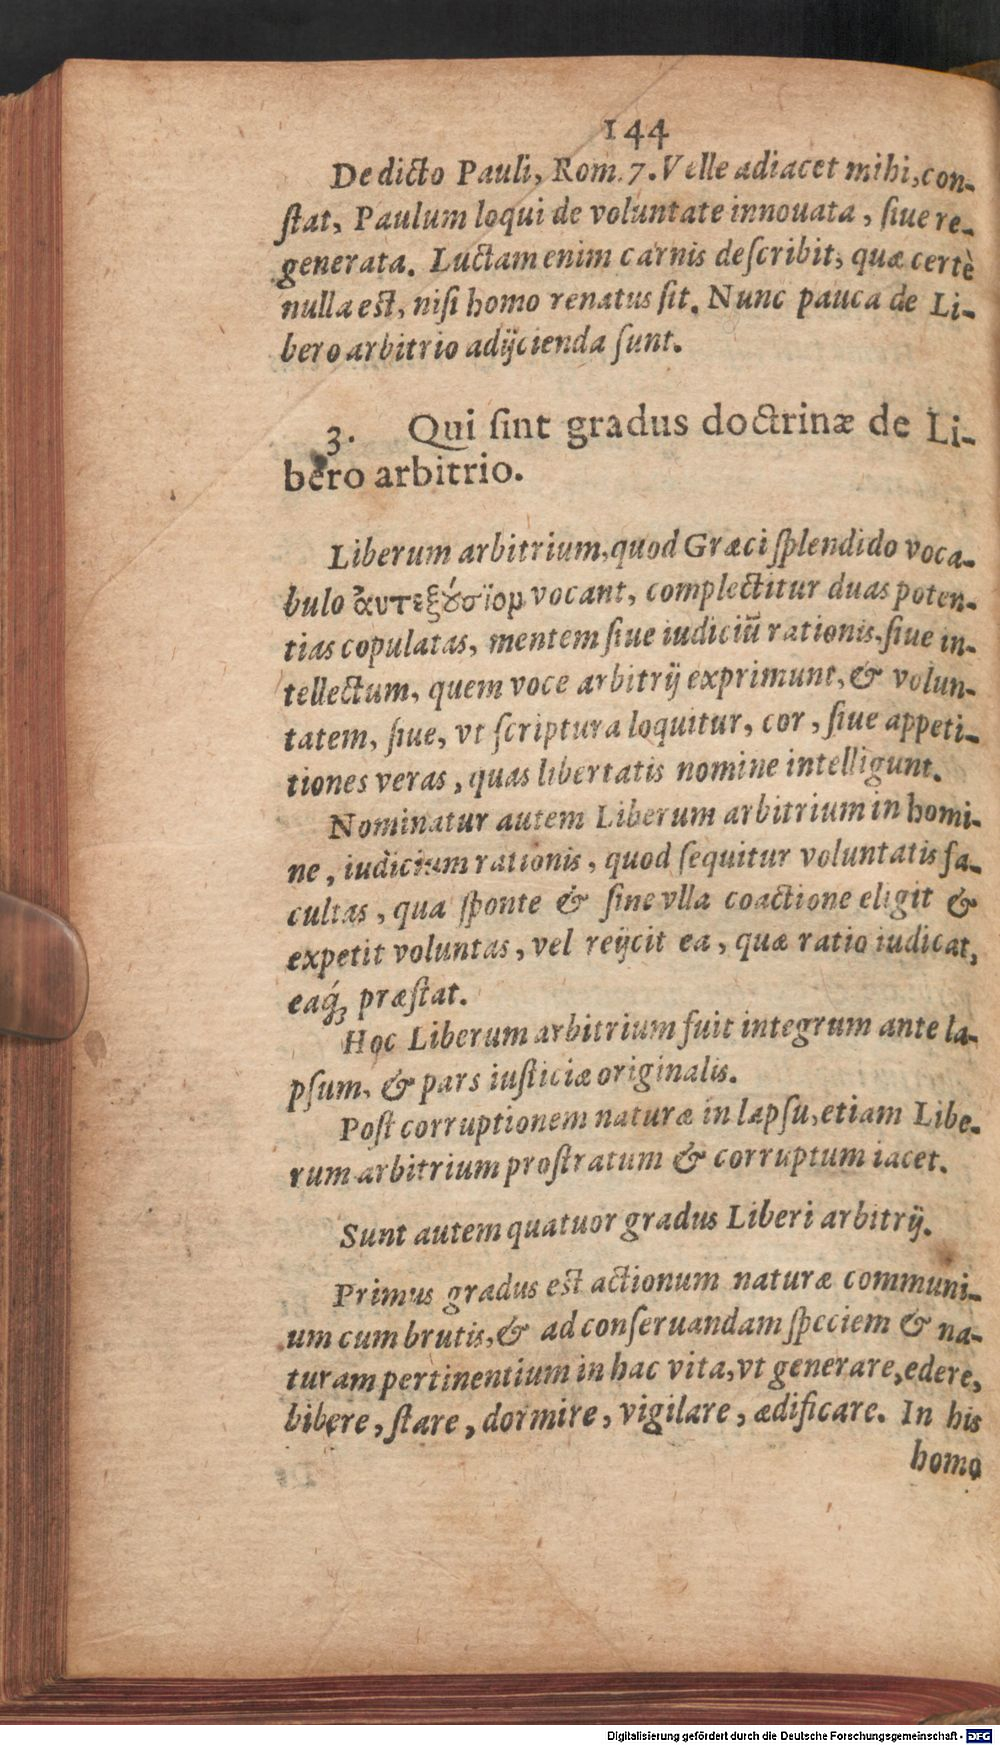 144
De dicto Pauli, Rom. 7. Velle adiacet mihi, con-
ſtat, Paulum loqui de voluntate innouata, ſiue re-
generata. Luctam enim carnis deſcribit, quæ certè
nulla est, niſi homo renatus ſit. Nunc pauca de Li-
bero arbitrio adijcienda ſunt.
3. Qui ſint gradus doctrinæ de Li-
bero arbitrio.
Liberum arbitrium, quod Græci ſplendido voca-
bulo ἀυτεξȣ́σϊομ vocant, complectitur duas poten-
tias copulatas, mentem ſiue iudiciũ rationis, ſiue in-
tellectum, quem voce arbitrij exprimunt, & volun-
tatem, ſiue, vt ſcriptura loquitur, cor, ſiue appeti-
tiones veras, quas libertatis nomine intelligunt.
Nominatur autem Liberum arbitrium in homi-
ne, iudicium rationis, quod ſequitur voluntatis fa-
cultas, qua ſponte & ſine vlla coactione eligit &
expetit voluntas, vel reijcit ea, quæ ratio iudicat,
eaq́ꝫ præſtat.
Hoc Liberum arbitrium fuit integrum ante la-
pſum, & pars iuſticiæ originalis.
Poſt corruptionem naturæ in lapſu, etiam Libe-
rum arbitrium proſtratum & corruptum iacet.
Sunt autem quatuor gradus Liberi arbitrij.
Primus gradus est actionum naturæ communi-
um cum brutis, & ad conſeruandam ſpeciem & na-
turam pertinentium in hac vita, vt generare, edere,
bibere, ſtare, dormire, vigilare, ædificare. In his
homo
Digitalisierung gefördert durch die Deutsche Forschungsgemeinschaft - DFG